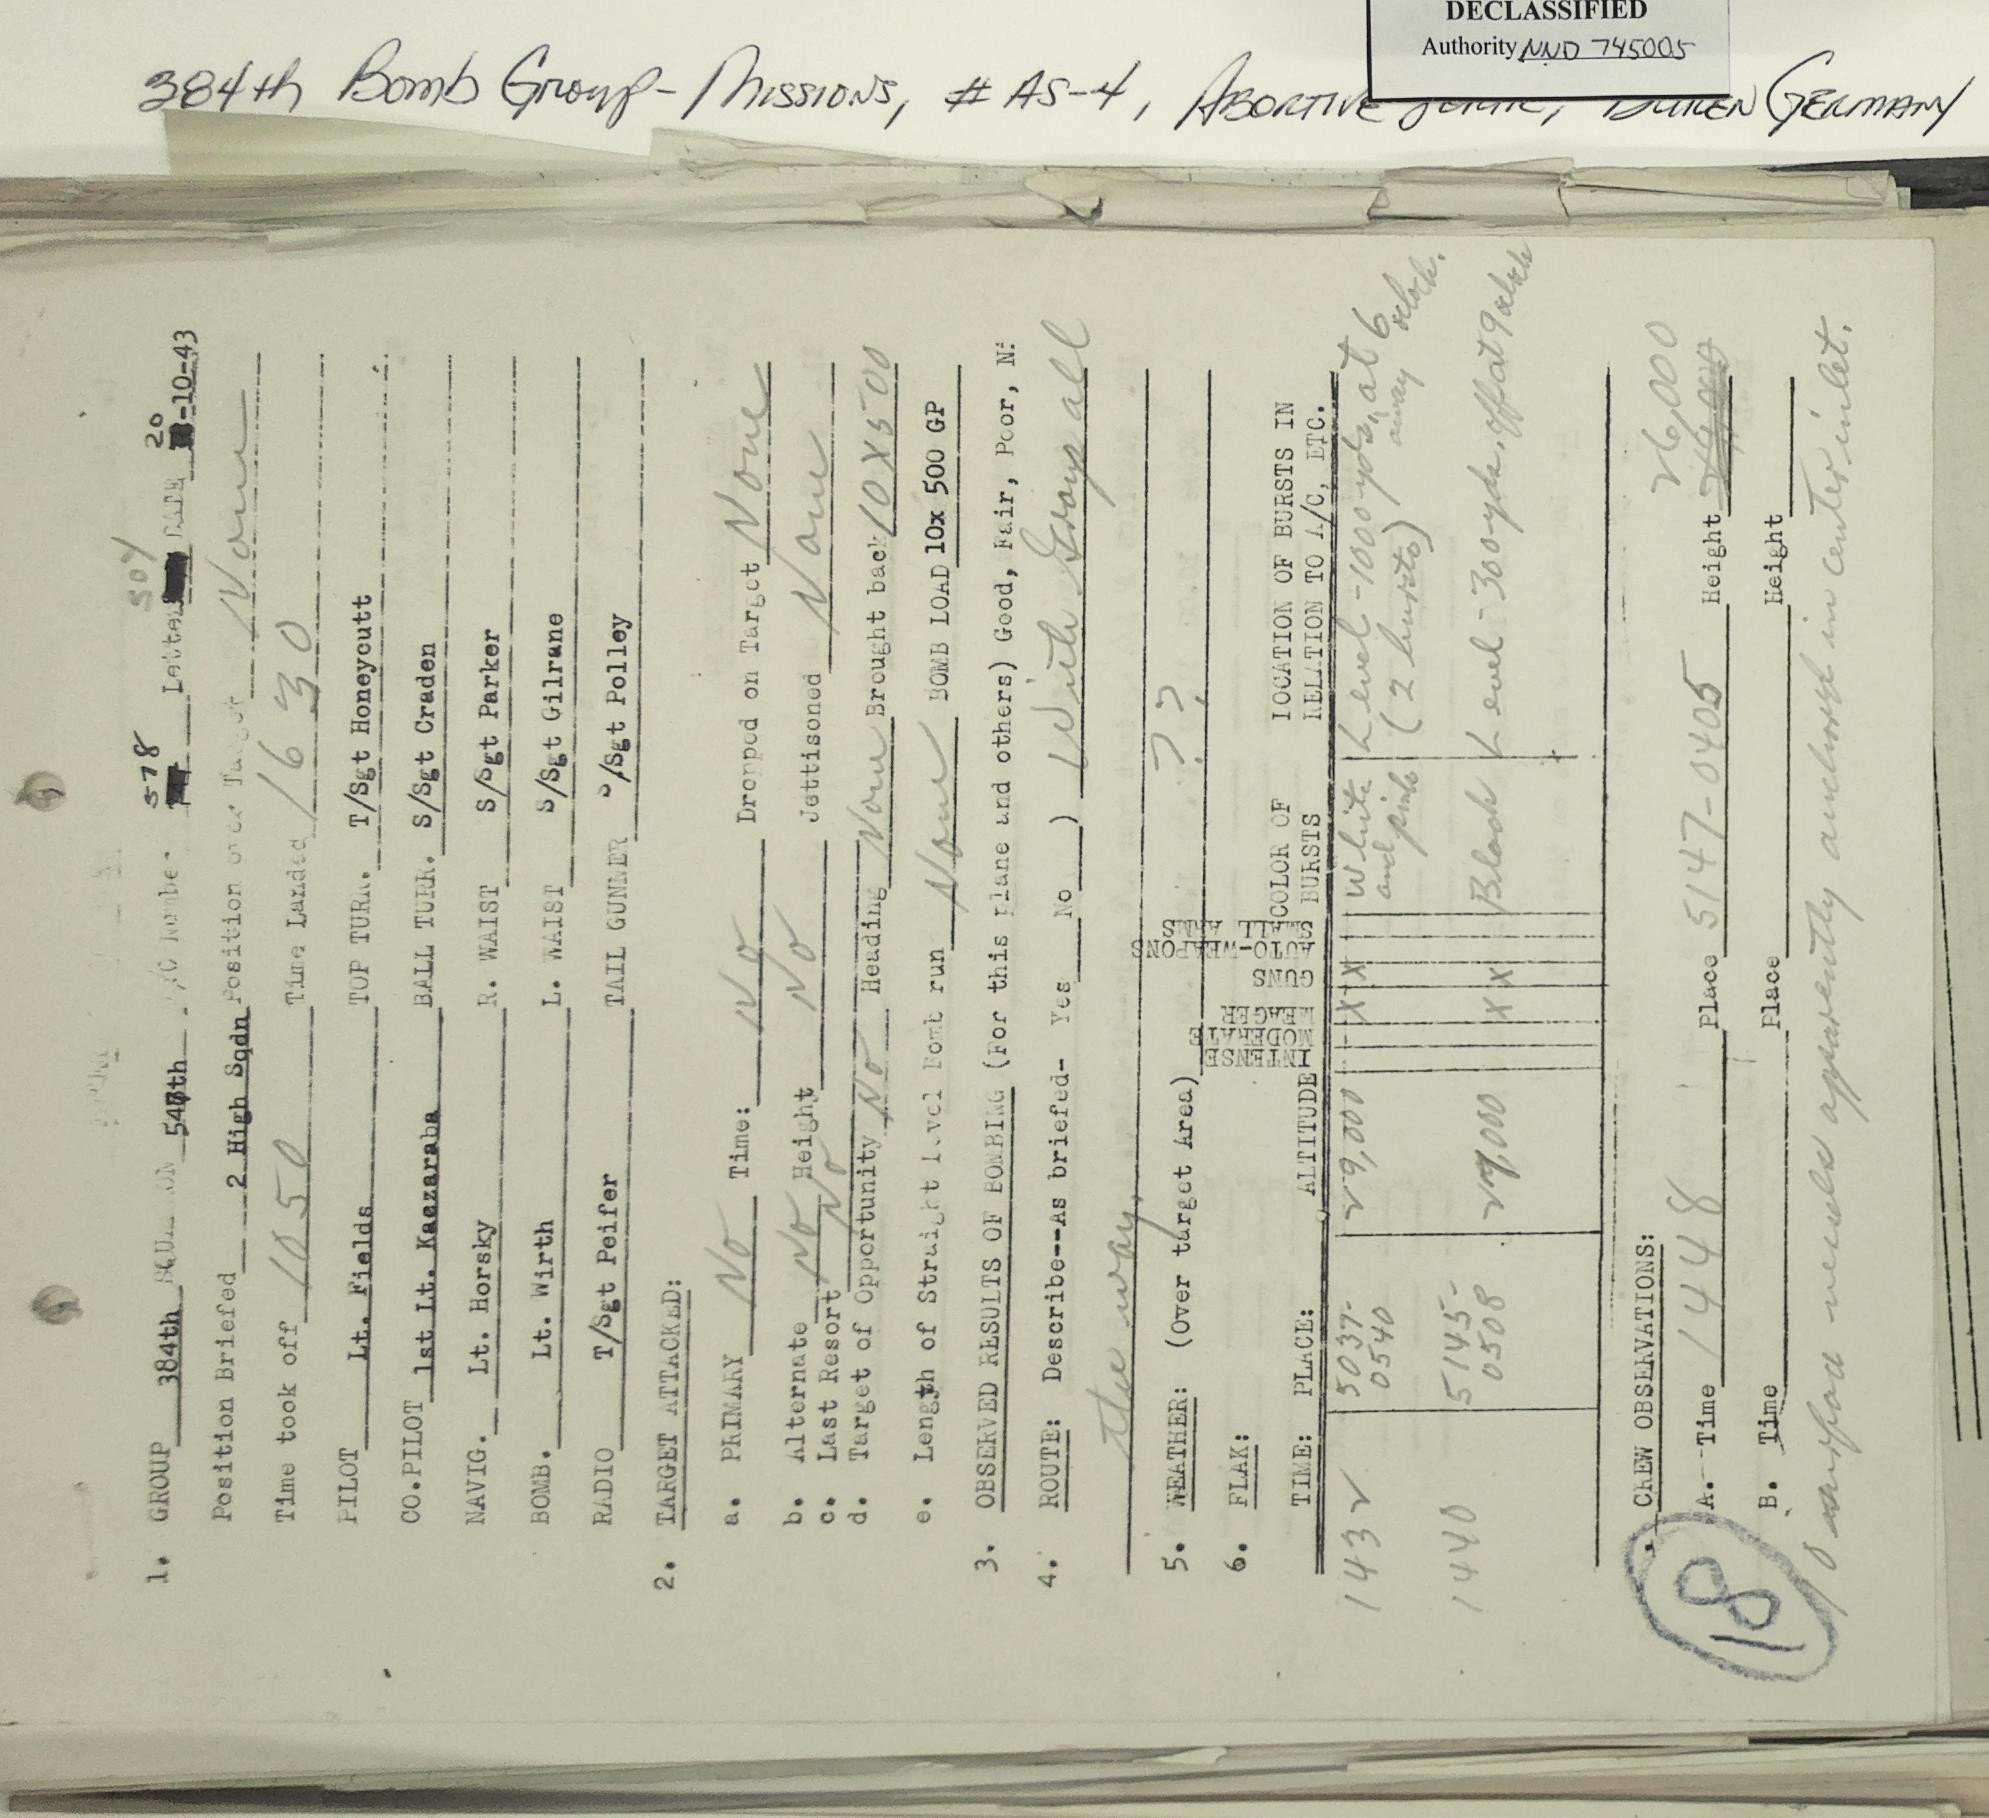 DECLASSIFIED
Authority NND 745005
384th Bomb Group - Missions, # AS-4, Abortive Germany
1. GROUP 384th 54 th 578 Letter 504 DATE 20-10-43
Position Briefed 2 High Sqdn Position over Target None
Time took off 1050 Time Landed 1630
PILOT Lt. Fields TOP TURR. T/Sgt Honeycutt
CO.PILOT 1st Lt. Kaczaraba BALL TURR. S/Sgt Craden
NAVIG. Lt. Horsky R. WAIST S/Sgt Parker
BOMB. Lt. Wirth L. WAIST S/Sgt Gilrane
RADIO T/Sgt Peifer TAIL GUNNER S/Sgt Polley
2. TARGET ATTACKED:
a. PRIMARY No Time: No Dropped on Target None
b. Alternate No Height No Jettisoned None
c. Last Resort No
d. Target of Opportunity No Heading None Brought back 10 x 500
e. Length of Straight Level Bomb run None BOMB LOAD 10x 500 GP
3. OBSERVED RESULTS OF BOMBING (For this plane and others) Good, Fair, Poor, N:
4. ROUTE: Describe--As briefed- Yes No ) With Group all
the way.
5. WEATHER: (Over target Area) ??
6. FLAK:
TIME: PLACE: ALTITUDE INTENSE MODERATE MEAGER GUNS AUTO-WEAPONS SMALL ARMS COLOR OF BURSTS LOCATION OF BURSTS IN RELATION TO A/C, ETC.
1432 5037-0540 29,000 X X White and pink Level - 1000 yds. away at 6 oclock. (2 bursts)
1440 5145-0508 27,000 X X Black Level - 300 yds. off at 9 oclock
CREW OBSERVATIONS:
A. Time 1448 Place 5147-0405 Height 26,000
B. Time Place Height
10 vessels apparently anchored in center inlet.
18